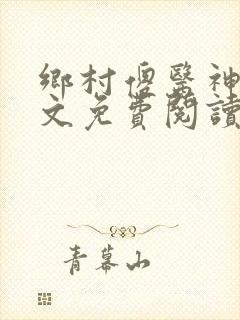 鄉村傻醫神
文免費閱讀
青幕山